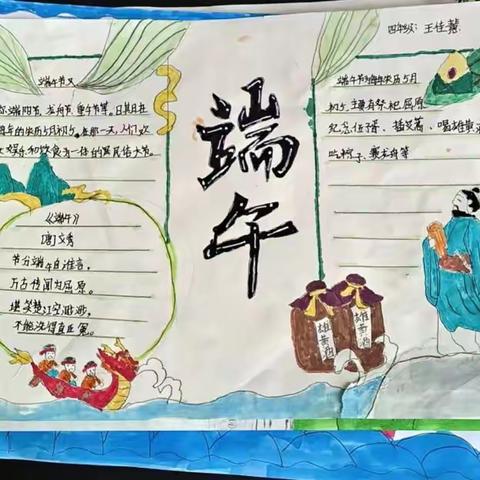 四年级: 王佳慧
端午
端午节又
称端阳节、龙舟节、重午节等。日期在
每年的农历五月初五。在那一天,人们
娱乐和饮食为一体的民俗大节。
《端午》
唐文秀
节分端午自谁言,
万古传闻为屈原。
堪笑楚江空渺渺,
不能洗得直臣冤。
端午节为每年农历5月
初五,主要有祭祀屈原
纪念伍子胥、插艾蒿、喝雄黄酒
吃粽子、赛龙舟等
雄黄酒
雄黄酒